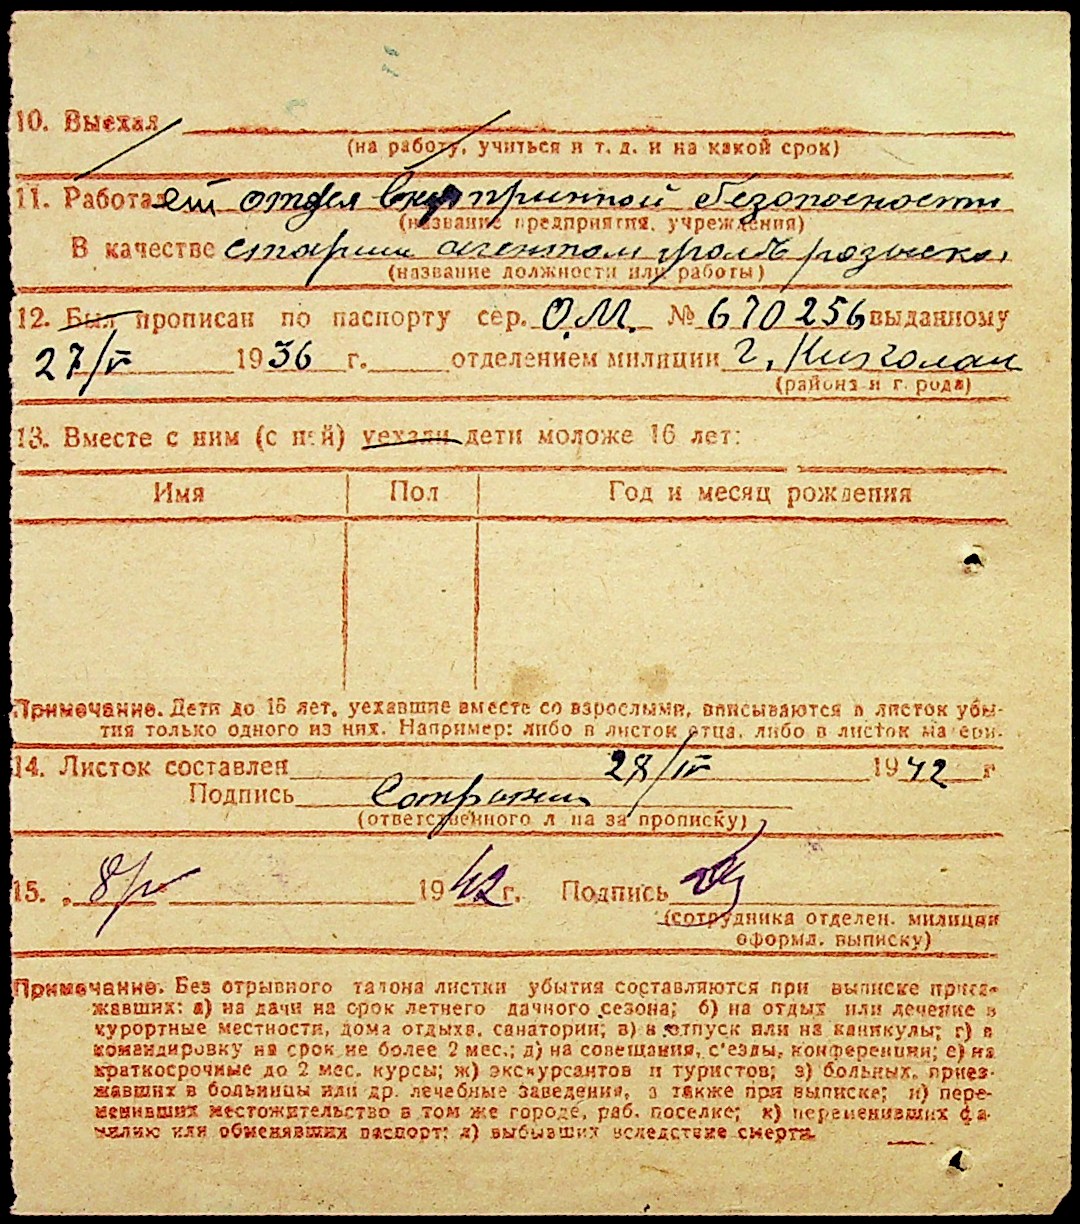 10. Выехал
(на работу, учиться и т. д. и на какой срок)
11. Работает отдел внутринной безопосности
(название предприятия, учреждения)
В качестве старшим агентом розыска
(название должности или работы)
12. Был прописан по паспорту сер. О.М. № 670256 выданному
27/IV 1936 г. отделением милиции г.
(района и города)
13. Вместе с ним (с ней) уехали дети моложе 16 лет:
Имя Пол Год и месяц рождения
Примечание. Дети до 16 лет, уехавшие вместе со взрослыми, вписываются в листок убы-
тия только одного из них. Например: либо в листок отца, либо в листок матери.
14. Листок составлен 28/IV 1942 г
Подпись
(ответственного лица за прописку)
15. 8/V 1942 г. Подпись
(сотрудника отделен. милиции
оформл. выписку)
Примечание. Без отрывного талона листки убытия составляются при выписке приез-
жавших: а) на дачи на срок летнего дачного сезона; б) на отдых или лечение в
курортные местности, дома отдыха, санатории; в) в отпуск или на каникулы; г) в
командировку на срок не более 2 мес.; д) на совещания, с'езды, конференции; е) на
краткосрочные до 2 мес. курсы; ж) экскурсантов и туристов; з) больных, приез-
жавших в больницы или др. лечебные заведения, а также при выписке; и) пере-
менивших местожительство в том же городе, раб. поселке; к) переменивших фа-
милию или обменявших паспорт; л) выбывших вследствие смерти.